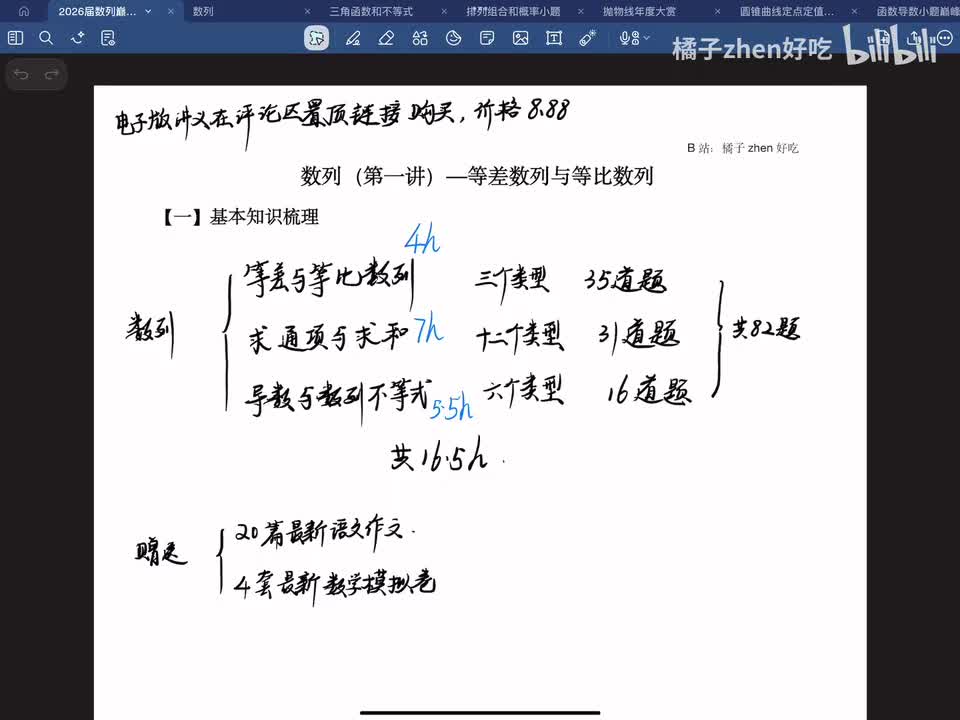 2026届数列巅... 数列 三角函数和不等式 排列组合和概率小题 抛物线年度大赏 圆锥曲线定点定值... 函数导数小题巅峰
橘子zhen好吃 bilibili
电子版讲义在评论区置顶链接购买,价格8.88
B 站：橘子 zhen 好吃
数列（第一讲）—等差数列与等比数列
【一】基本知识梳理
4h
等差与等比数列 三个类型 35道题
数列 求通项与求和 7h 十二个类型 31道题 共82题
导数与数列不等式 5.5h 六个类型 16道题
共16.5h
20篇最新语文作文.
赠送
4套最新数学模拟卷